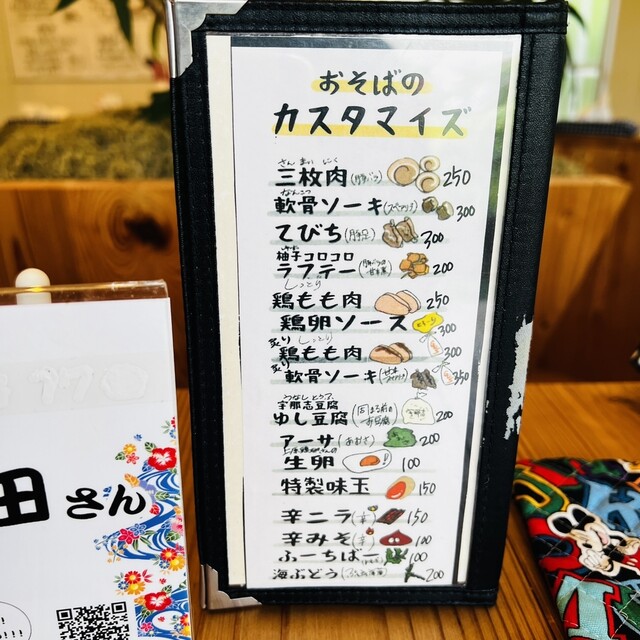 おそばの
カスタマイズ
さんまいにく
三枚肉(豚バラ) 250
なんこつ
軟骨ソーキ(スペアリブ) 300
てびち(豚足) 300
柚子コロコロ
ラフテー 200
しっとり
鶏もも肉 250
鶏卵ソース 300
炙り しっとり
鶏もも肉 300
炙り
軟骨ソーキ 350
宇那志豆腐
ゆし豆腐 200
アーサ(あおさ) 200
生卵 100
特製味玉 150
辛ニラ 150
辛みそ 100
ふーちばー 100
海ぶどう 200
田さん